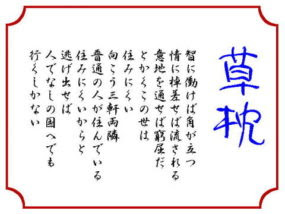 草枕
智に働けば角が立つ
情に棹差せば流される
意地を通せば窮屈だ
とかくこの世は
住みにくい
向こう三軒両隣
普通の人が住んでいる
住みにくいからと
逃げ出せば
人でなしの国へでも
行くしかない